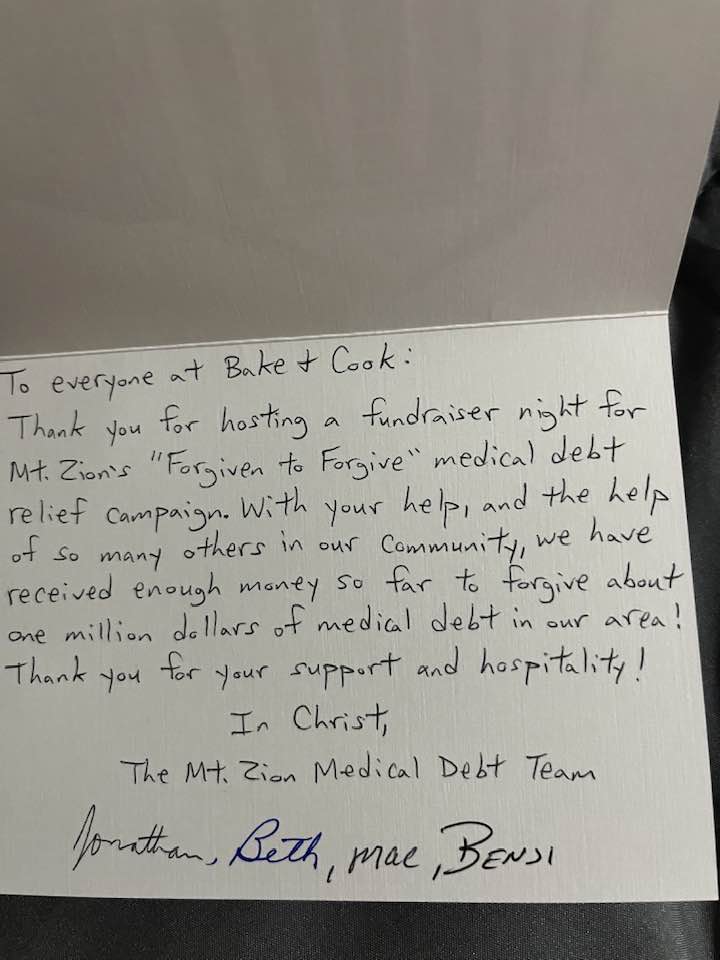 To everyone at Bake + Cook:
Thank you for hosting a fundraiser night for
Mt. Zion's "Forgiven to Forgive" medical debt
relief campaign. With your help, and the help
of so many others in our community, we have
received enough money so far to forgive about
one million dollars of medical debt in our area!
Thank you for your support and hospitality!
In Christ,
The Mt. Zion Medical Debt Team
Jonathan, Beth, Mae, BENJI